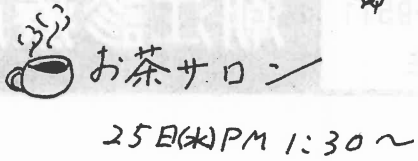 お茶サロン
25日(水)PM 1:30～